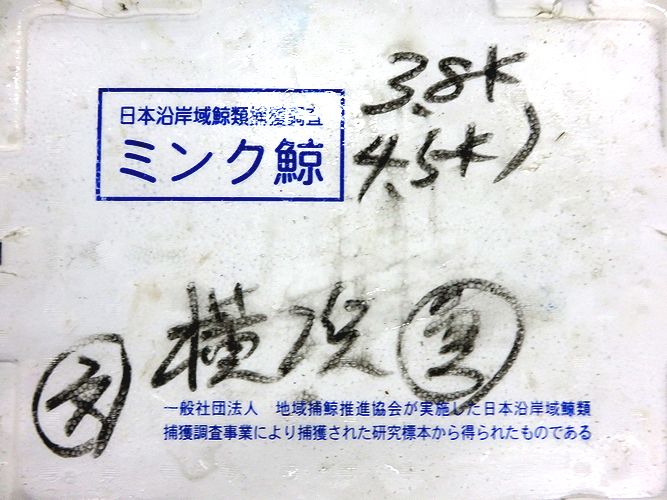 日本沿岸域鯨類捕獲調査
ミンク鯨
3.8K
4.5K)
横浜
一般社団法人 地域捕鯨推進協会が実施した日本沿岸域鯨類
捕獲調査事業により捕獲された研究標本から得られたものである